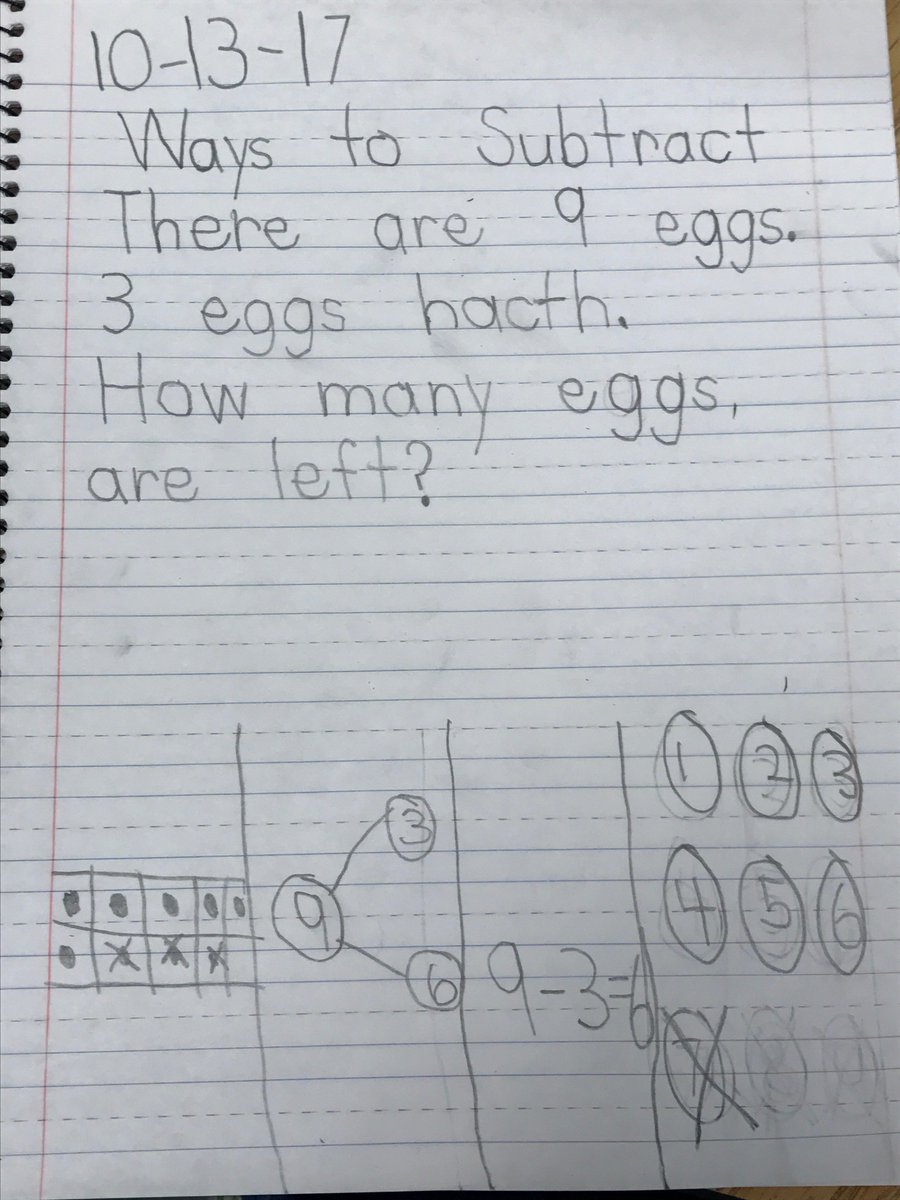 10-13-17
Ways to Subtract
There are 9 eggs.
3 eggs hacth.
How many eggs,
are left?
9 3 6
9-3=6
1 2 3
4 5 6
7 8 9